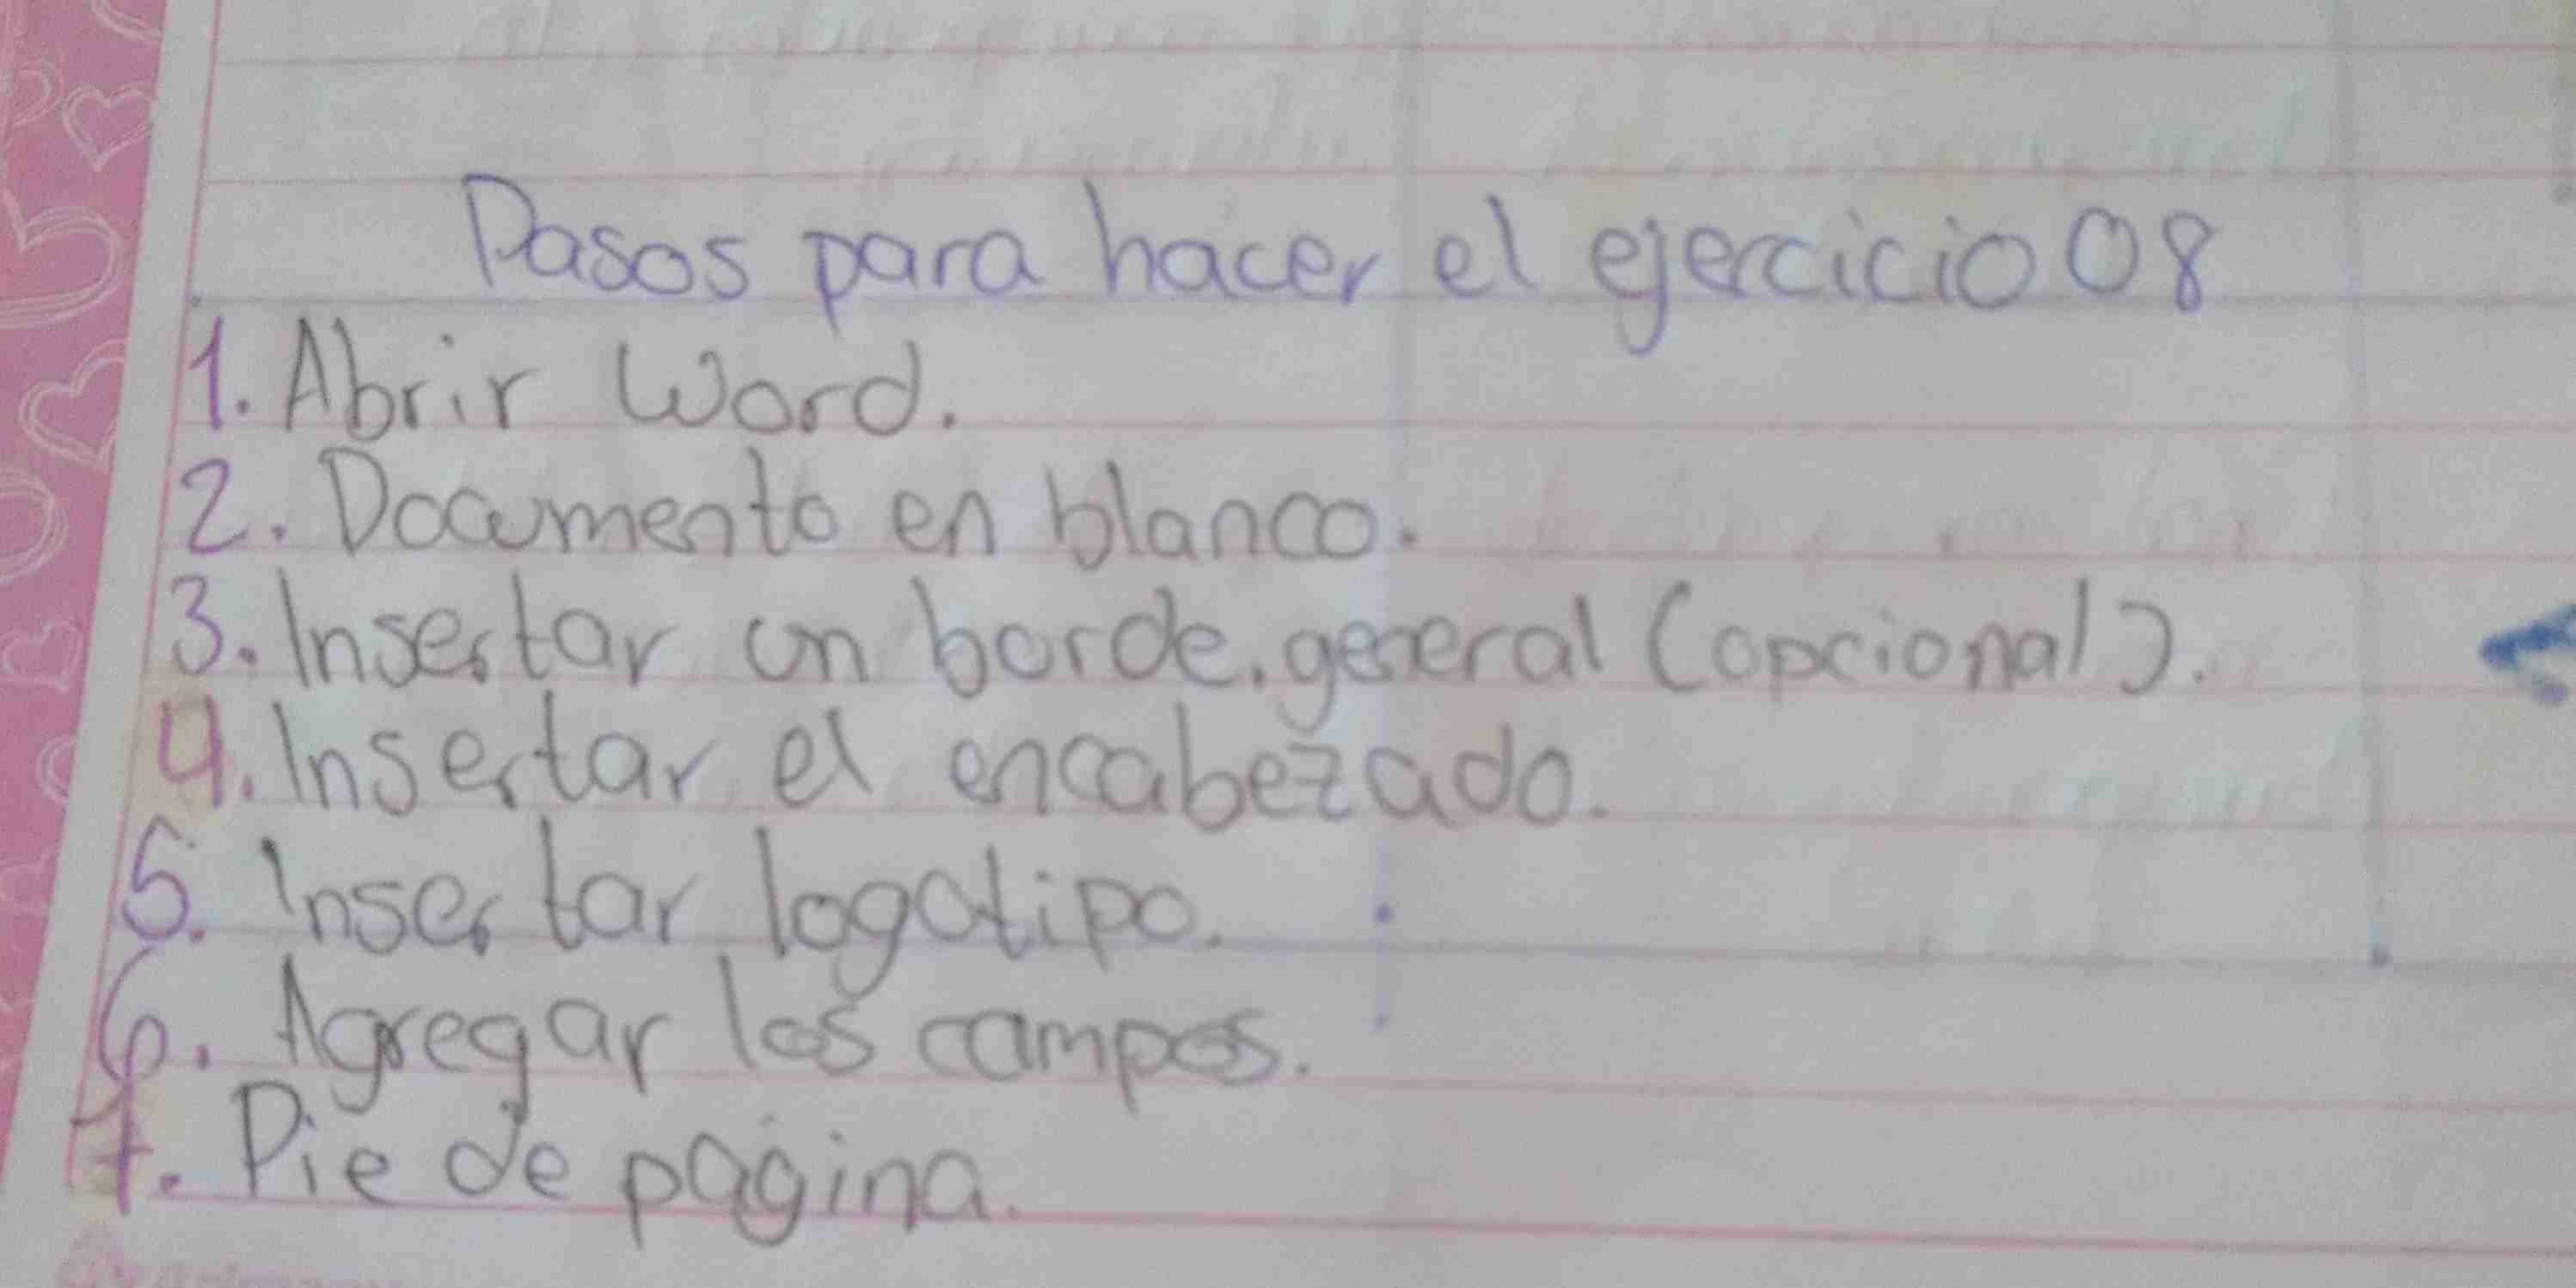 Pasos para hacer el ejercicio 08
1. Abrir Word.
2. Documento en blanco.
3. Insertar un borde.general (opcional).
4. Insertar el encabezado.
5. Insertar logotipo.
6. Agregar los campos.
7. Pie de página.